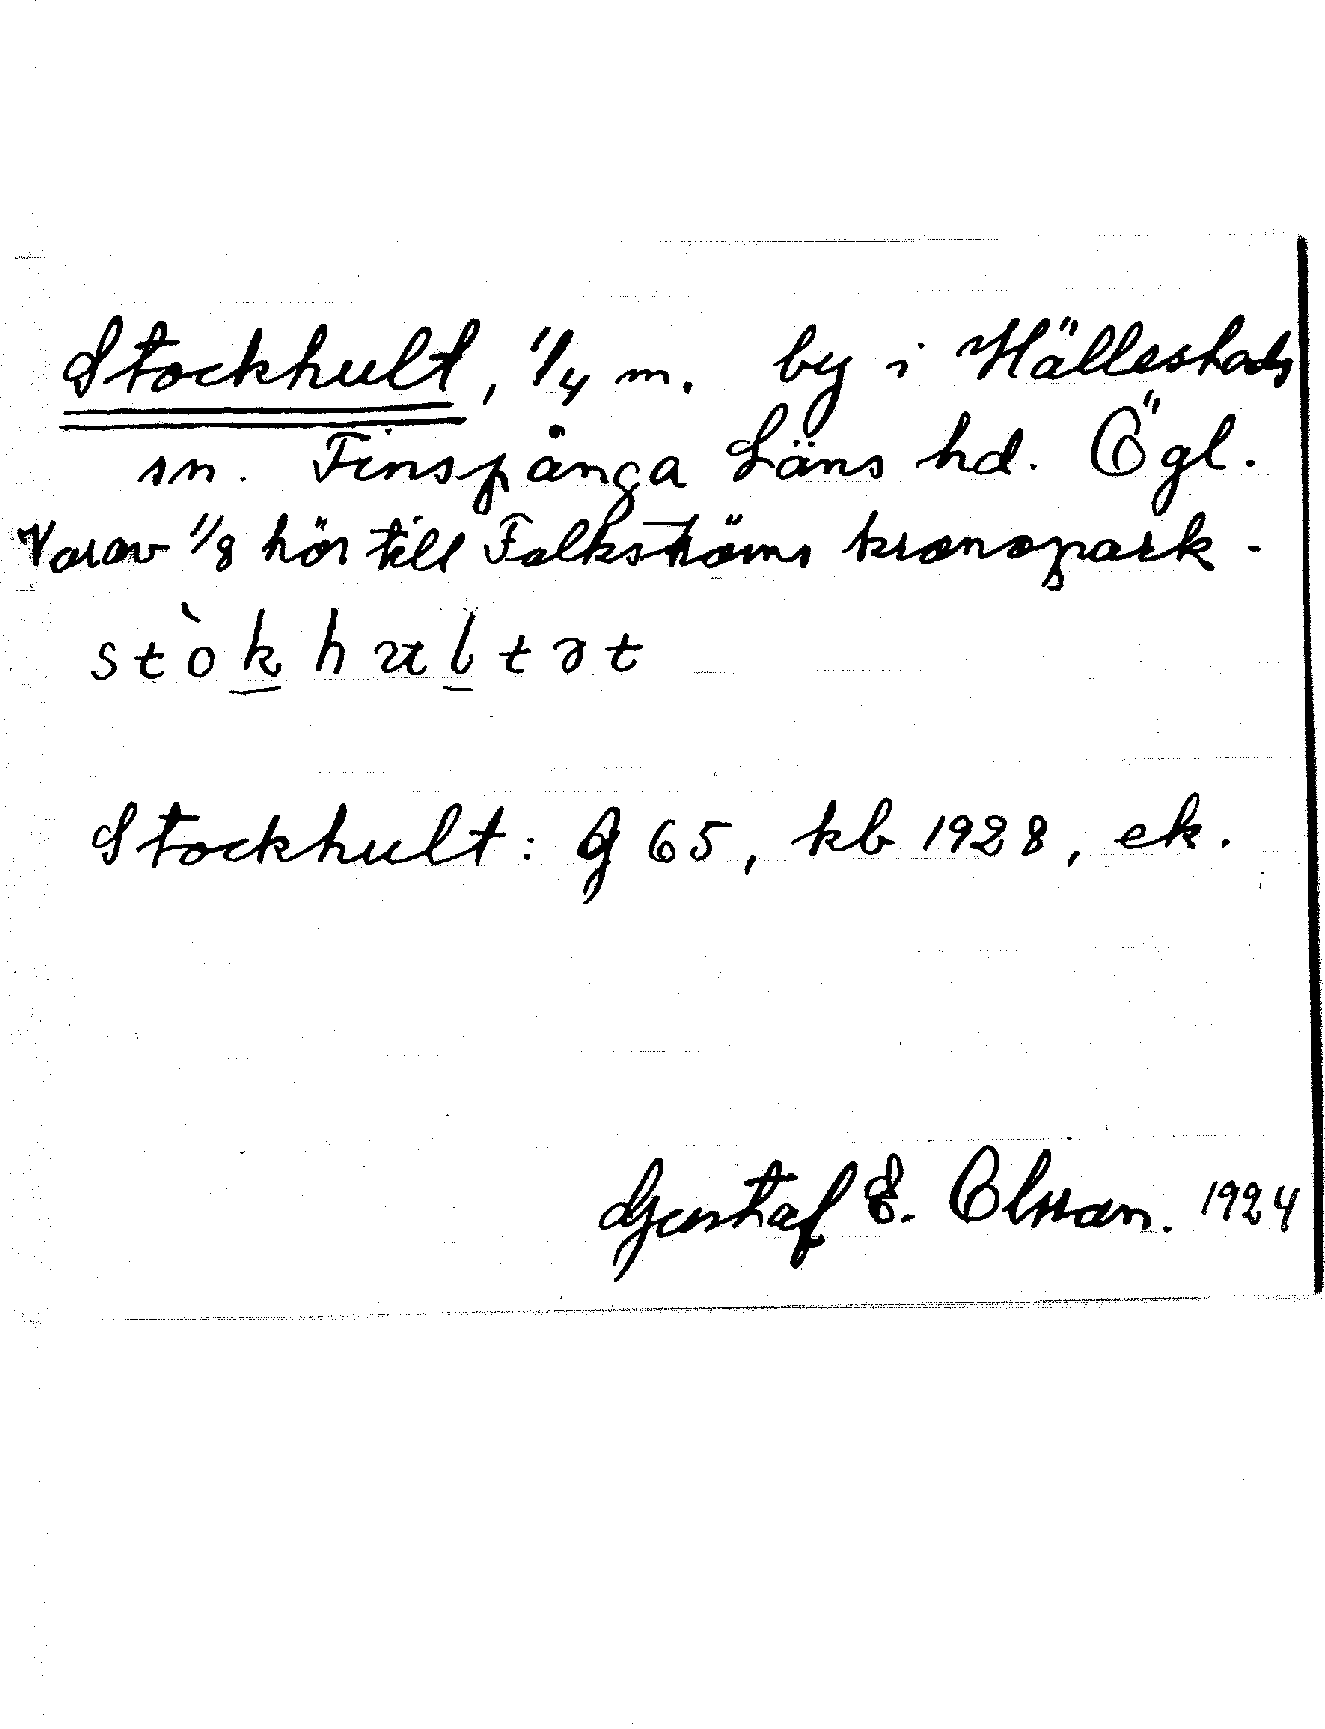 Stockhult, 1/4 m. by i Hällestads
sn. Finspånga Läns hd. Ögl.
Varav 1/8 hör till Falkströms kronopark.
stòkhultət
Stockhult: G 65, kb 1928, ek.
Gustaf E. Olsson. 1924